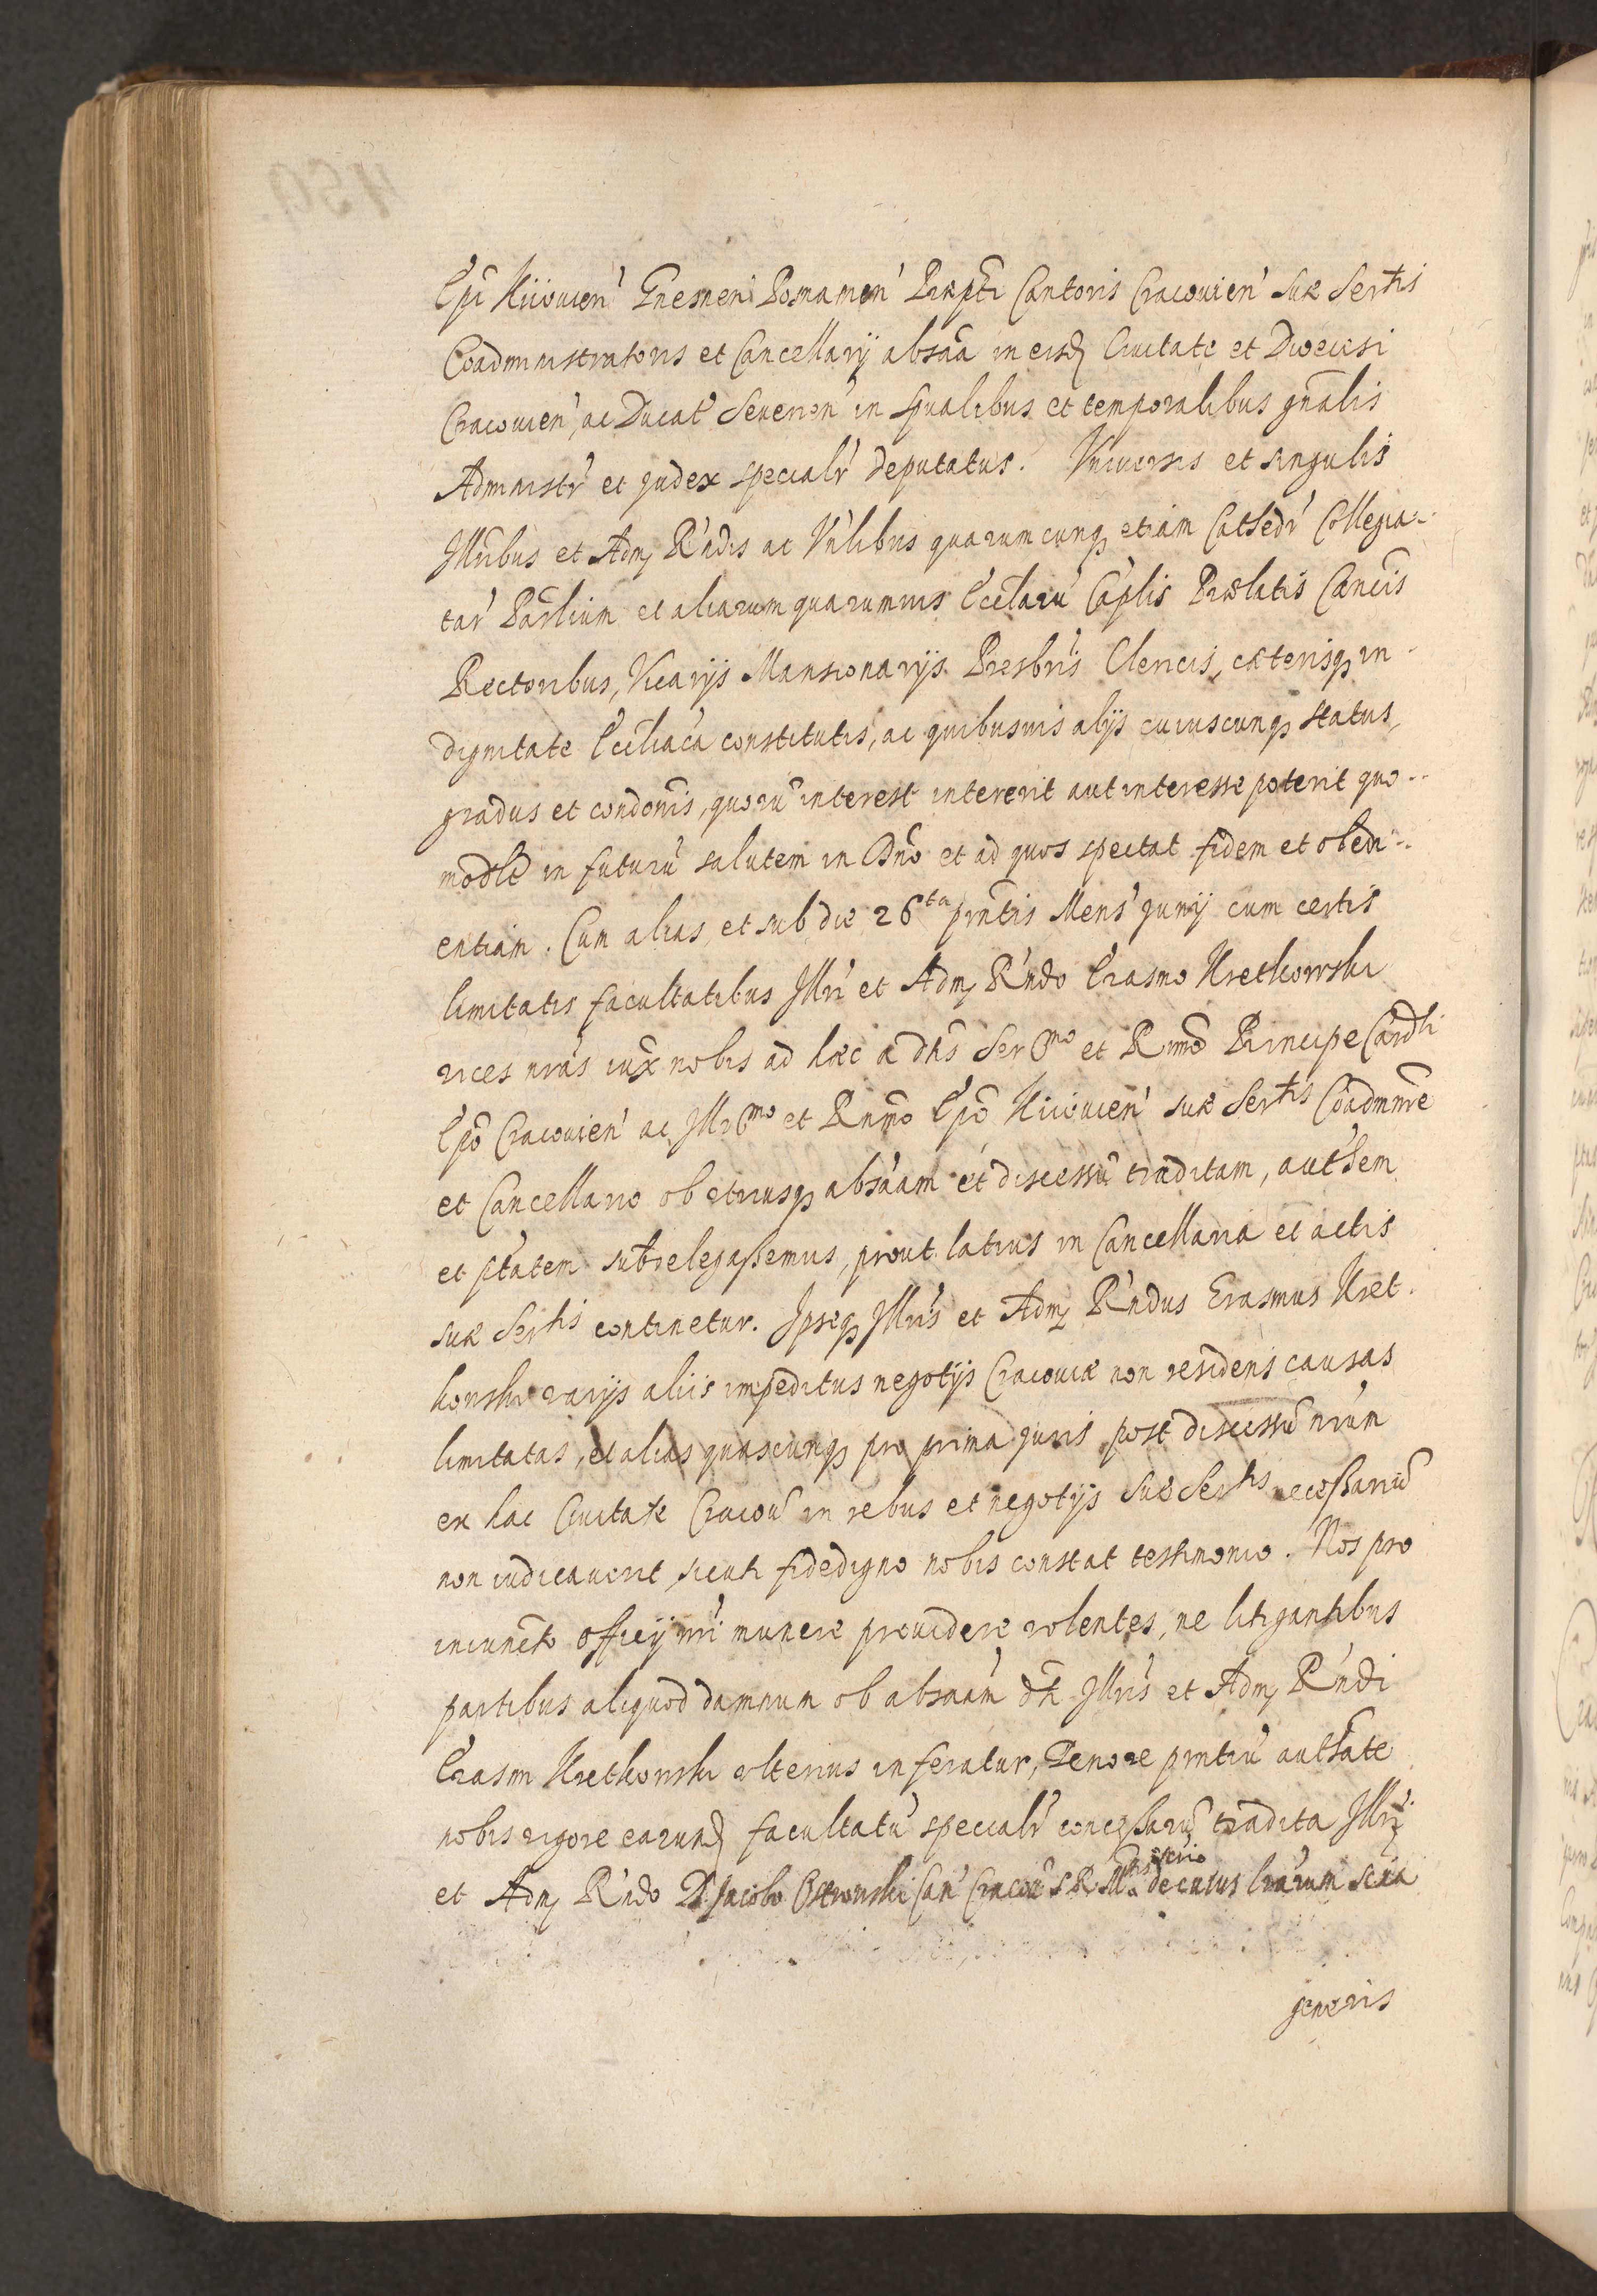 Epi Kiiovien' Gnesnen' Posnanien' Præpti Cantoris Cracovien' suæ Sertis
Coadministratoris et Cancellarij absâa in eisd. Civitate et Dioecesi
Cracovien', ac Ducat' Severien' in spualibus et temporalibus gñalis
Administr' et Judex specialr' deputatus. Universis et singulis
Jllribus et Adm R'ndis ac Vn'libus quarumcunq, etiam Cathedr' Collegia-
tar' Parlium et aliarum quarumvis Ecclaru' Ca'plis Prælatis Cancis
Rectoribus, Vicarijs Mansionarijs Presbris Clericis, cæterisq, in
dignitate Eccliaca constitutis, ac quibusvis alijs cuiuscunq, status,
gradus et condonis, quoru' interest intererit aut interesse poterit quo-
modlt in futuru' salutem in Dno et ad quos spectat fidem et obedi-
entiam. Cum alias et sub die 26ta pntis Mens' Junij cum certis
limitatis facultatibus Jllri et Adm R'ndo Erasmo Kretkowski
vices nras iux nobis ad hæc a dhs Ser mo et Rmo Principe Cardli
Epo Cracovien' ac Jllr mo et Rnmo Epo Kiiovien' suæ Sertis Coadmnre
et Cancellario ob utriusq, absaam et discessu' traditam, authem
et ptatem subdelegassemus, prout latius in Cancellaria et actis
suæ Sertis continetur. Jpseq, Jllris et Adm R'ndus Erasmus Kret-
kowski varijs aliis impeditus negotijs Cracoviæ non residens causas
limitatas, et alias quascunq, pro prima juris post discessu' nrum
ex hac Civitate Cracov' in rebus et negotijs Suæ Sertis necessariu'
non iudicaverit, sicuti fidedigno nobis constat testimonio. Nos pro
iniuncto officij nri munere providere volentes, ne litigantibus
partibus aliquod damnum ob absaam dh Jllris et Adm R'ndi
Erasmi Kretkowski ulterius inferatur, Tenore pntiu' authate
nobis vigore earund. facultatu' specialr' concessaru' tradita Jllri
et Adm R'ndo D. Jacobo Ostrowski Can' Cracov' S. R. Mtis Secrio de cuius lrarum scia
generis